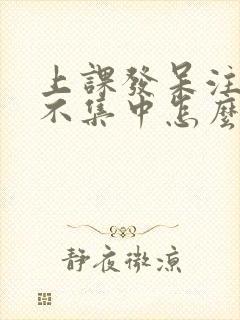 上課發呆注
不集中怎麼
靜夜微涼